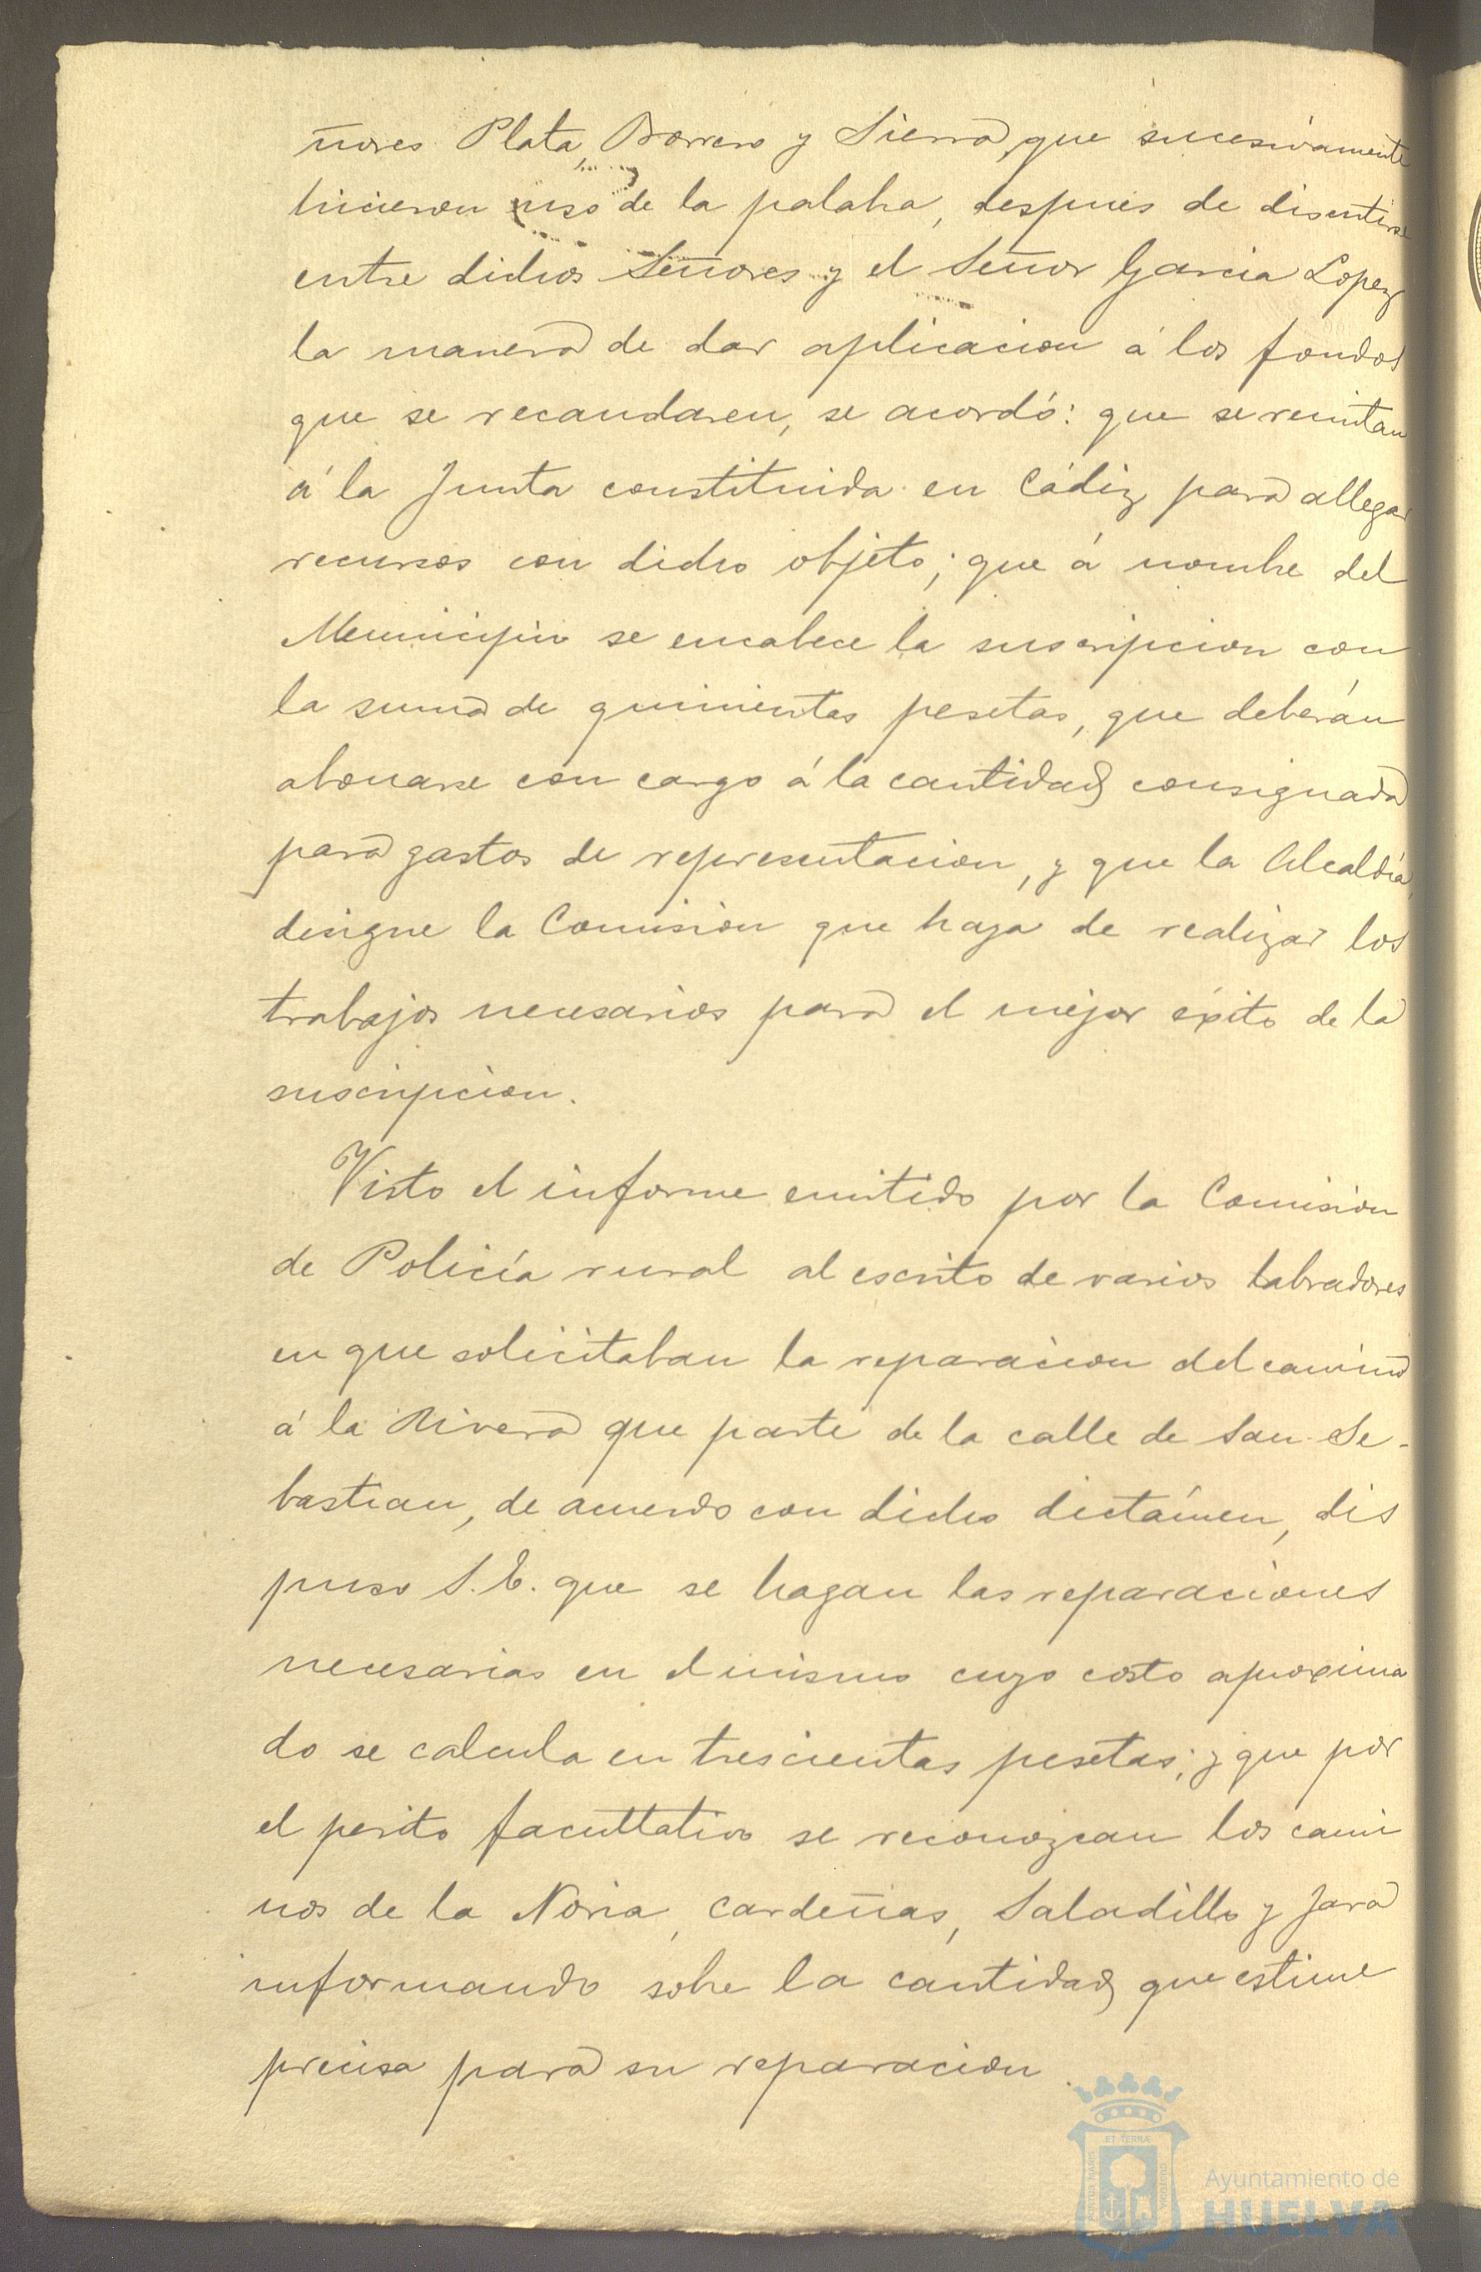 ñores Plata, Borrero y Sierra, que sucesivamente
hicieron uso de la palabra, despues de discutirse
entre dichos Señores y el Señor Garcia Lopez
la manera de dar aplicacion á los fondos
que se recaudaren, se acordó: que se remitan
á la Junta constituida en Cádiz para allegar
recursos con dicho objeto; que á nombre del
Municipio se encabece la suscripcion con
la suma de quinientas pesetas, que deberán
abonarse con cargo á la cantidad consignada
para gastos de representacion, y que la Alcaldía
designe la Comision que haya de realizar los
trabajos necesarios para el mejor éxito de la
suscripcion.
Visto el informe emitido por la Comision
de Policía rural al escrito de varios labradores
en que solicitaban la reparacion del camino
á la Rivera que parte de la calle de San Se-
bastian, de acuerdo con dicho dictámen, dis
puso S.E. que se hagan las reparaciones
necesarias en el mismo cuyo costo aproxima
do se calcula en trescientas pesetas; y que por
el perito facultativo se reconozcan los cami
nos de la Noria, Cardeñas, Saladillo y Jara
informando sobre la cantidad que estime
precisa para su reparacion.
Ayuntamiento de
HUELVA